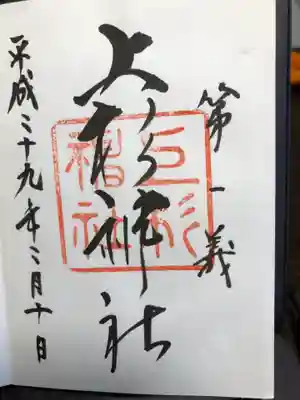 第一義
上杉神社
上杉神社
平成二十九年二月十日